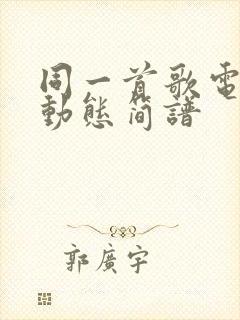 同一首歌電
動態简譜
郭廣宇